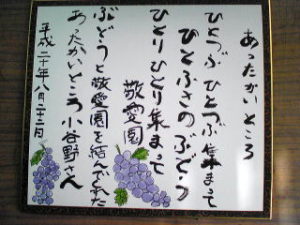 あったかいところ
ひとつぶ ひとつぶ 集まって
ひとふさのぶどう
ひとりひとり集まって
敬愛園
ぶどうと敬愛園を結んでくれた
あったかいところ 小谷野さんへ
平成二十年八月二十二日